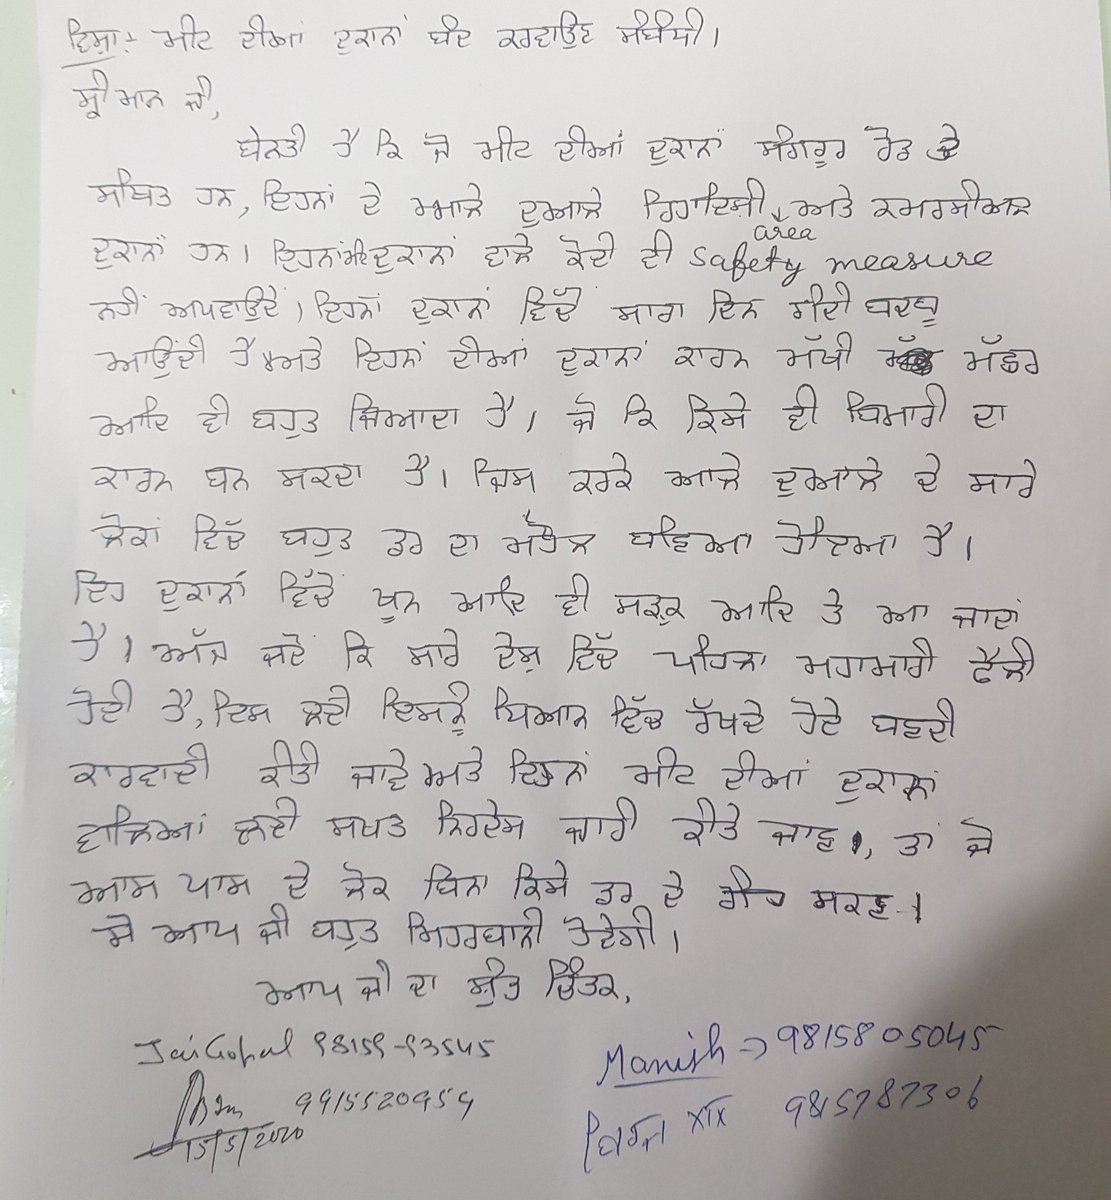 ਵਿਸ਼ਾ:- ਮੀਟ ਦੀਆਂ ਦੁਕਾਨਾਂ ਬੰਦ ਕਰਵਾਉਣ ਸੰਬੰਧੀ।
ਸ਼੍ਰੀ ਮਾਨ ਜੀ,
ਬੇਨਤੀ ਹੈ ਕਿ ਜੋ ਮੀਟ ਦੀਆਂ ਦੁਕਾਨਾਂ ਸੰਗਰੂਰ ਰੋਡ ਤੇ
ਸਥਿਤ ਹਨ, ਇਹਨਾਂ ਦੇ ਆਲੇ ਦੁਆਲੇ ਰਿਹਾਇਸ਼ੀ area ਅਤੇ ਕਮਰਸੀਅਲ
ਦੁਕਾਨਾਂ ਹਨ। ਇਹਨਾਂ ਮੀਟ ਦੁਕਾਨਾਂ ਵਾਲੇ ਕੋਈ ਵੀ safety measure
ਨਹੀਂ ਅਪਣਾਉਂਦੇ। ਇਹਨਾਂ ਦੁਕਾਨਾਂ ਵਿੱਚੋਂ ਸਾਰਾ ਦਿਨ ਗੰਦੀ ਬਦਬੂ
ਆਉਂਦੀ ਹੈ ਅਤੇ ਇਹਨਾਂ ਦੀਆਂ ਦੁਕਾਨਾਂ ਕਾਰਨ ਮੱਖੀ ਮੱਛਰ
ਆਦਿ ਵੀ ਬਹੁਤ ਜਿਆਦਾ ਹੈ। ਜੋ ਕਿ ਕਿਸੇ ਵੀ ਬਿਮਾਰੀ ਦਾ
ਕਾਰਨ ਬਨ ਸਕਦਾ ਹੈ। ਜਿਸ ਕਰਕੇ ਆਲੇ ਦੁਆਲੇ ਦੇ ਸਾਰੇ
ਲੋਕਾਂ ਵਿੱਚ ਬਹੁਤ ਡਰ ਦਾ ਮਹੌਲ ਬਣਿਆ ਹੋਇਆ ਹੈ।
ਇਹ ਦੁਕਾਨਾਂ ਵਿੱਚੋਂ ਖੂਨ ਆਦਿ ਵੀ ਸੜਕ ਆਦਿ ਤੇ ਆ ਜਾਦਾਂ
ਹੈ। ਅੱਜ ਜਦੋਂ ਕਿ ਸਾਰੇ ਦੇਸ਼ ਵਿੱਚ ਪਹਿਲਾ ਮਹਾਮਾਰੀ ਫੈਲੀ
ਹੋਈ ਹੈ, ਇਸ ਲਈ ਇਸਨੂੰ ਧਿਆਨ ਵਿੱਚ ਰੱਖਦੇ ਹੋਏ ਬਣਦੀ
ਕਾਰਵਾਈ ਕੀਤੀ ਜਾਵੇ ਅਤੇ ਇਹਨਾਂ ਮੀਟ ਦੀਆਂ ਦੁਕਾਨਾਂ
ਵਾਲਿਆਂ ਲਈ ਸਖਤ ਨਿਰਦੇਸ਼ ਜਾਰੀ ਕੀਤੇ ਜਾਣ, ਤਾਂ ਜੋ
ਆਸ ਪਾਸ ਦੇ ਲੋਕ ਬਿਨਾ ਕਿਸੇ ਡਰ ਦੇ ਰਹਿ ਸਕਣ।
ਸੋ ਆਪ ਜੀ ਬਹੁਤ ਮਿਹਰਬਾਨੀ ਹੋਵੇਗੀ।
ਆਪ ਜੀ ਦਾ ਸ਼ੁੱਭ ਚਿੰਤਕ,
Jai Gopal 98159-93545
Manish → 98158 05045
9915520959
9815787306
15/5/2020